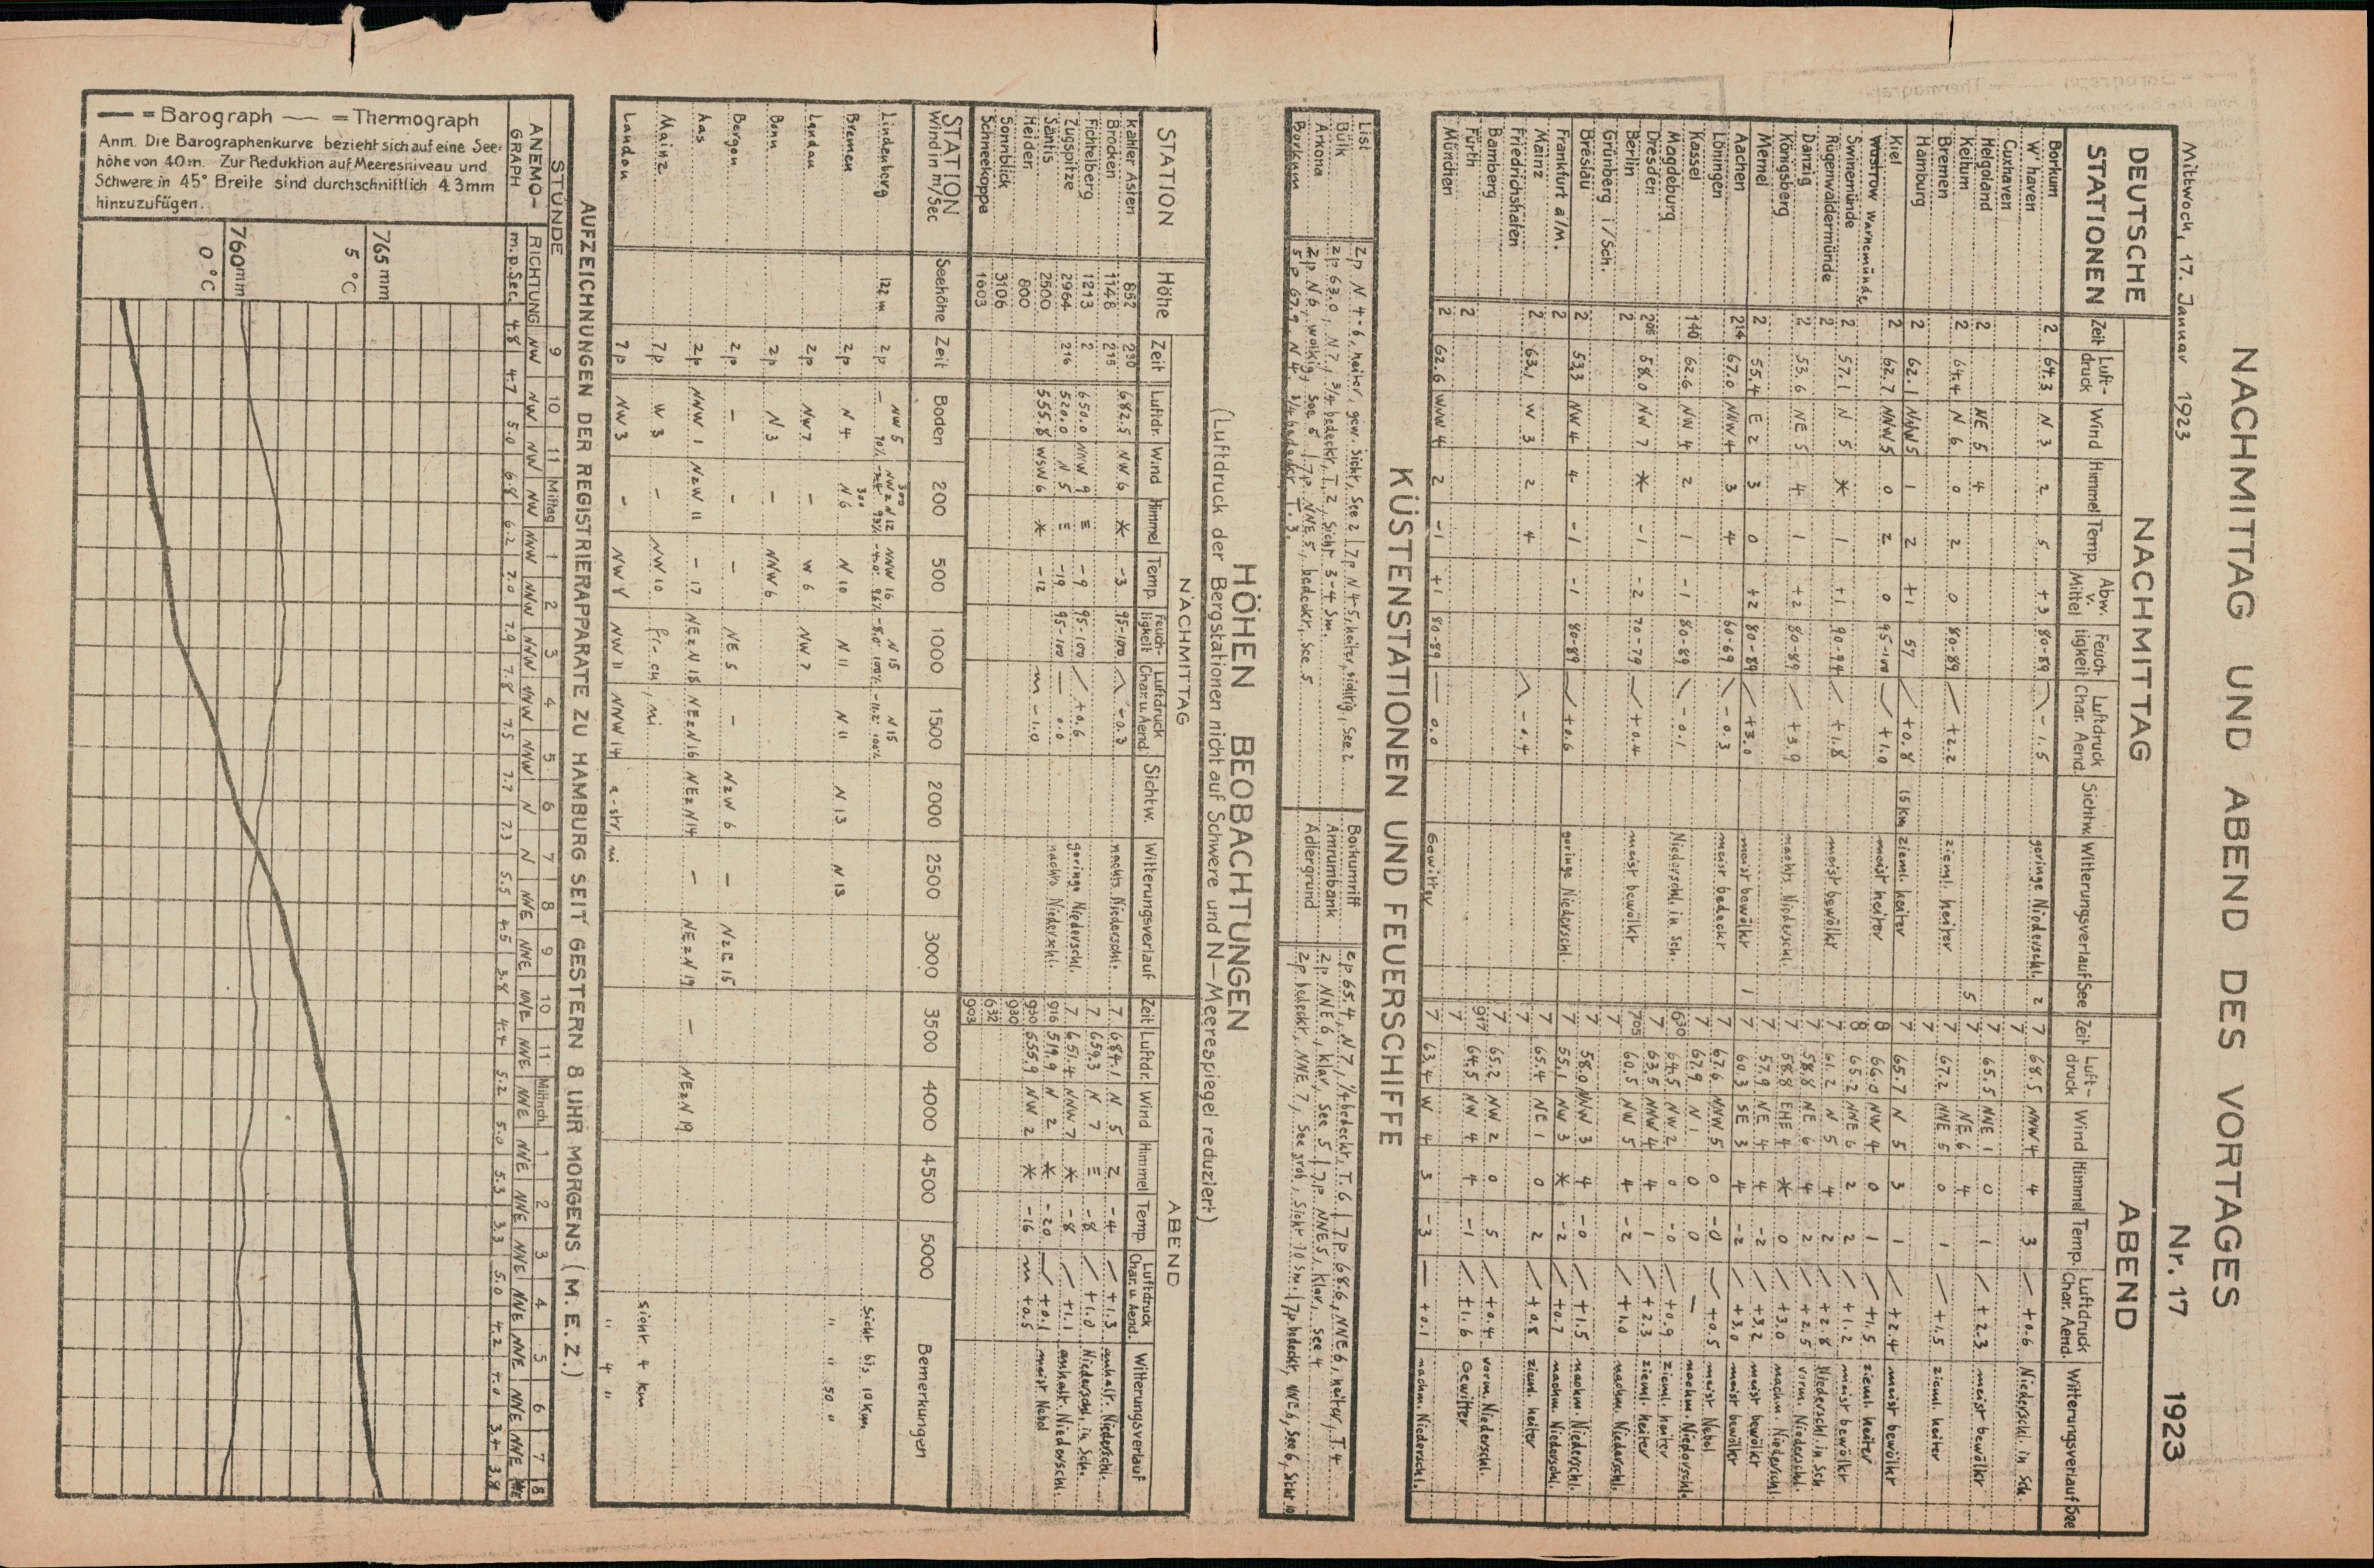 NACHMITTAG UND ABEND DES VORTAGES
Mittwoch, 17. Januar 1923 Nr. 17 1923
DEUTSCHE STATIONEN NACHMITTAG ABEND
Zeit Luft-druck Wind Himmel Temp. Abw. v. Mittel Feuch-tigkeit Luftdruck Char. Aend. Sichtw. Witterungsverlauf See Zeit Luft-druck Wind Himmel Temp. Luftdruck Char. Aend. Witterungsverlauf See
Borkum 2 64.3 N 3 2 5 +3 80-89 -1.5 geringe Niederschl. 2 7 68.5 NNW 4 4 3 +0.6 Niederschl. in Sch.
W'haven 7
Cuxhaven 7 65.5 NNE 1 0 1 +2.3 meist bewölkt
Helgoland 2 NE 5 4 5 7 NE 6 4
Keitum 2 64.4 N 6 0 2 0 80-89 +2.2 zieml. heiter 7 67.2 NNE 5 0 1 +1.5 zieml. heiter
Bremen 7
Hamburg 2 62.1 NNW 5 1 2 +1 57 +0.8 15 km zieml. heiter 7 65.7 N 5 3 1 +2.4 meist bewölkt
Kiel 2 62.7 NNW 5 0 2 0 95-100 +1.0 meist heiter 8 66.0 NW 4 0 1 +1.5 zieml. heiter
Wustrow Warnemünde 8 65.2 NNE 6 2 2 +1.2 meist bewölkt
Swinemünde 2 57.1 N 5 * 1 +1 90-94 +1.8 meist bewölkt 7 61.2 N 5 4 2 +2.8 Niederschl. in Sch
Rügenwaldermünde 2 7 58.8 NE 6 4 2 +2.5 vorm. Niederschl.
Danzig 2 53.6 NE 5 4 1 +2 80-89 +3.9 nachts Niederschl. 7 58.8 ENE 4 * 0 +3.0 nachm. Niederschl.
Königsberg 7 57.9 NE 4 4 -2 +3.2 meist bewölkt
Memel 2 55.4 E 2 3 0 +2 80-89 +3.0 meist bewölkt 1 7 60.3 SE 3 4 -2 +3.0 meist bewölkt
Aachen 214 67.0 NNW 4 3 4 60-69 -0.3 meist bedeckt 7 67.6 NNW 5 0 -0 +0.5 meist Nebel
Löningen 67.9 N 1 0 0 nachm Niederschl.
Kassel 140 62.6 NW 4 2 1 -1 80-89 -0.1 Niederschl. in Sch. 630 64.5 NW 2 0 -0 +0.9 zieml. heiter
Magdeburg 7 63.5 NNW 4 4 1 +2.3 zieml. heiter
Dresden 206 58.0 NW 7 * -1 -2 70-79 +0.4 meist bewölkt 705 60.5 NW 5 4 -2 +1.0 nachm. Niederschl.
Berlin 2
Grünberg i/Sch. 7
Breslau 2 53.3 NW 4 4 -1 -1 80-89 +0.6 geringe Niederschl. 7 58.0 NNW 3 4 -0 +1.5 nachm. Niederschl.
Frankfurt a/M. 2 7 55.1 NW 3 * -2 +0.7 nachm. Niederschl.
Mainz 2 63.1 W 3 2 4 -0.4 7 65.4 NE 1 0 2 +0.8 ziemt. heiter
Friedrichshafen 7
Bamberg 917 65.2 NW 2 0 5 +0.4 vorm. Niederschl.
Fürth 2 7 64.5 NW 4 4 -1 +1.6 Gewitter
München 2 62.6 WNW 4 2 -1 +1 80-89 0.0 Gewitter 7 63.4 W 4 3 -3 +0.1 nachm. Niederschl.
KÜSTENSTATIONEN UND FEUERSCHIFFE
List 2p N 4-6, heiter, gew. Sicht, See 2 | 7p N 4-5, heiter, sichtig, See 2
Bülk 2p 63.0, N 7, 3/4 bedeckt, T. 2, Sicht 3-4 Sm.
Arkona 2p N 6, wolkig, See 5 | 7p NNE 5, bedeckt, See 5
Borkum 5p 67.9 N 4, 1/4 bedeckt, T. 3.
Borkumriff 2p 65.4, N 7, 1/4 bedeckt, T. 6 | 7p 68.6, NNE 6, heiter, T. 4
Amrumbank 2p NNE 6, klar, See 5 | 7p NNE 5, klar, See 4
Adlergrund 2p bedeckt, NNE 7, See grob, Sicht 10 Sm. | 7p bedeckt, NNE 6, See 6, Sicht 10
HÖHEN BEOBACHTUNGEN
(Luftdruck der Bergstationen nicht auf Schwere und N-Meeresspiegel reduziert)
STATION Höhe NACHMITTAG ABEND
Zeit Luftdr. Wind Himmel Temp. Feuch-tigkeit Luftdruck Char. u. Aend. Sichtw. Witterungsverlauf Zeit Luftdr. Wind Himmel Temp. Luftdruck Char. u. Aend. Witterungsverlauf
Kahler Asten 852 230 682.5 NW 6 * -3 95-100 -0.3 nachts Niederschl. 7 684.1 N 5 2 -4 +1.3 anhalt. Niederschl.
Brocken 1148 215 7 659.3 N 7 ≡ -8 +1.0 Niederschl. in Sch.
Fichtelberg 1213 2 650.0 NNW 9 ≡ -9 95-100 +0.6 geringe Niederschl. 7 651.4 NNW 7 * -8 +1.1 anhalt. Niederschl.
Zugspitze 2964 216 520.0 N 5 ≡ -19 95-100 0.0 nachts Niederschl. 916 519.9 N 2 * -20 +0.1 meist Nebel
Säntis 2500 555.8 WSW 6 * -12 -1.0 930 555.9 NW 2 * -16 +0.5
Heiden 800 930
Sonnblick 3106 632
Schneekoppe 1603 903
STATION Wind in m/Sec Seehöhe Zeit Boden 200 500 1000 1500 2000 2500 3000 3500 4000 4500 5000 Bemerkungen
Lindenberg 122 m 2p NW 5 300 NWzN 12 NNW 16 N 15 N 15 Sicht bis 10 Km
Bremen 2p N 4 300 N 6 N 10 N 11 N 11 N 13 N 13 " " 50 "
Landau 2p NW 7 - W 6 NW 7
Ben 2p N 3 - NNW 6
Bergen 2p - - - NE 5 - NzW 6 - NzE 15
Aas 2p NNW 1 NzW 11 - 17 NEzN 18 NEzN 16 NEzN 14 - NEzN 19 - NEzN 19
Mainz 7p W 3 - NW 10 fr-cu, ni Sicht 4 km
Landau 7p NW 3 - NW 8 NW 11 NNW 14 a-str, ni " 4 "
AUFZEICHNUNGEN DER REGISTRIERAPPARATE ZU HAMBURG SEIT GESTERN 8 UHR MORGENS (M. E. Z.)
STUNDE 9 10 11 Mittag 1 2 3 4 5 6 7 8 9 10 11 Mittnch. 1 2 3 4 5 6 7 8
ANEMO-GRAPH RICHTUNG NW NW NW NW NNW NNW NNW NNW NNW N N NNE NNE NNE NNE NNE NNE NNE NNE NNE NNE NNE NNE NNE
m.p.Sec. 4.8 4.7 5.0 6.8 6.2 7.0 7.9 7.8 7.5 7.7 7.3 5.5 4.5 3.8 4.4 5.2 5.0 5.3 3.3 5.0 4.2 4.0 3.4 3.8
765 mm
5 °C
760 mm
0 °C
= Barograph = Thermograph
Anm. Die Barographenkurve bezieht sich auf eine See-
höhe von 40 m. Zur Reduktion auf Meeresniveau und
Schwere in 45° Breite sind durchschnittlich 4.3 mm
hinzuzufügen.